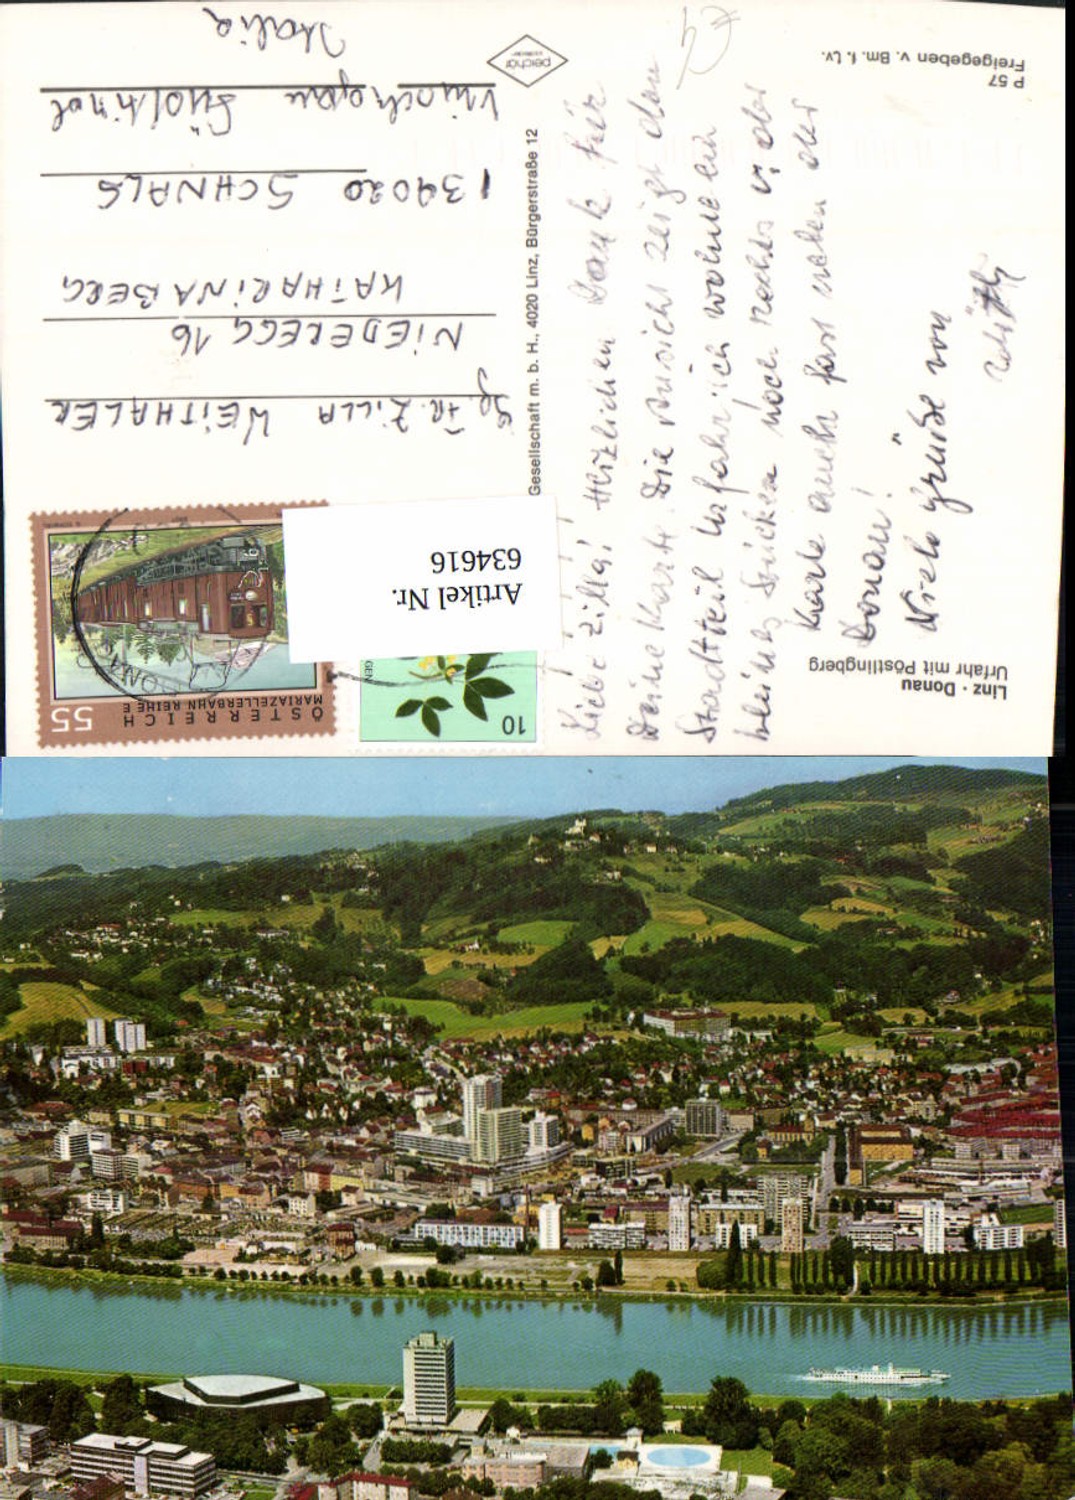 Linz · Donau
Urfahr mit Pöstlingberg
P 57
Freigegeben v. Bm. f. Lv.
peichär
Gesellschaft m. b. H., 4020 Linz, Bürgerstraße 12
Artikel Nr.
634616
10
55
ÖSTERREICH
MARIAZELLERBAHN REIHE E
Liebe Zilla! Herzlichen Dank für
Deine Karte. Die Ansicht zeigt den
Stadtteil Urfahr, ich wohne ein
kleines Stückchen noch rechts v. der
Karte auch fast neben der
Donau!
Viele Grüße von
Fr. ZILLA WEITHALER
NIEDEREGG 16
KATHARINABERG
I 39020 SCHNALS
Vinschgau Südtirol
Italia